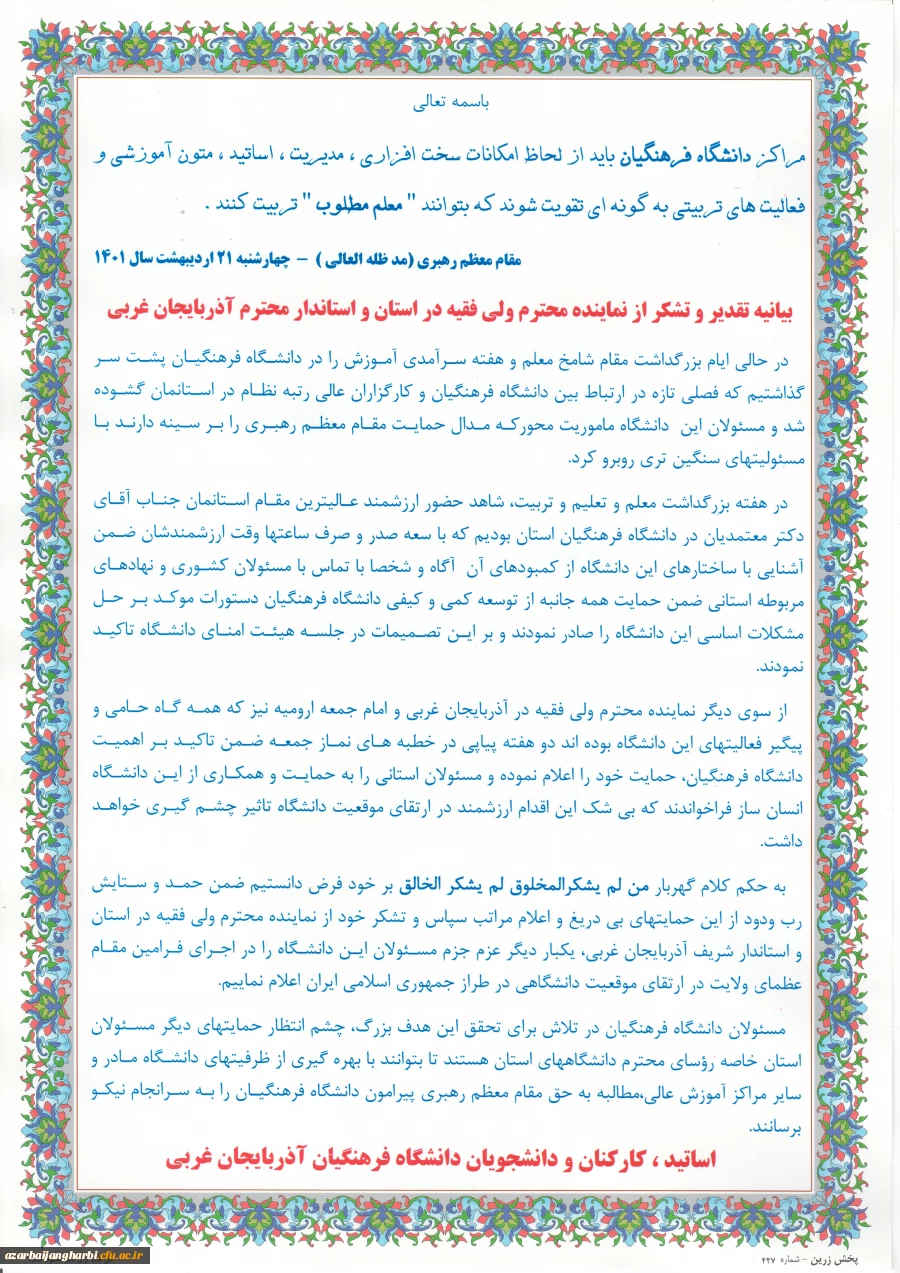 باسمه تعالی
مراکز دانشگاه فرهنگیان باید از لحاظ امکانات سخت افزاری ، مدیریت ، اساتید ، متون آموزشی و
فعالیت های تربیتی به گونه ای تقویت شوند که بتوانند " معلم مطلوب " تربیت کنند .
مقام معظم رهبری (مد ظله العالی ) – چهارشنبه ۲۱ اردیبهشت سال ۱۴۰۱
بیانیه تقدیر و تشکر از نماینده محترم ولی فقیه در استان و استاندار محترم آذربایجان غربی
در حالی ایام بزرگداشت مقام شامخ معلم و هفته سرآمدی آموزش را در دانشگاه فرهنگیان پشت سر
گذاشتیم که فصلی تازه در ارتباط بین دانشگاه فرهنگیان و کارگزاران عالی رتبه نظام در استانمان گشوده
شد و مسئولان این دانشگاه ماموریت محورکه مدال حمایت مقام معظم رهبری را بر سینه دارند با
مسئولیتهای سنگین تری روبرو کرد.
در هفته بزرگداشت معلم و تعلیم و تربیت، شاهد حضور ارزشمند عالیترین مقام استانمان جناب آقای
دکتر معتمدیان در دانشگاه فرهنگیان استان بودیم که با سعه صدر و صرف ساعتها وقت ارزشمندشان ضمن
آشنایی با ساختارهای این دانشگاه از کمبودهای آن آگاه و شخصا با تماس با مسئولان کشوری و نهادهای
مربوطه استانی ضمن حمایت همه جانبه از توسعه کمی و کیفی دانشگاه فرهنگیان دستورات موکد بر حل
مشکلات اساسی این دانشگاه را صادر نمودند و بر این تصمیمات در جلسه هیئت امنای دانشگاه تاکید
نمودند.
از سوی دیگر نماینده محترم ولی فقیه در آذربایجان غربی و امام جمعه ارومیه نیز که همه گاه حامی و
پیگیر فعالیتهای این دانشگاه بوده اند دو هفته پیاپی در خطبه های نماز جمعه ضمن تاکید بر اهمیت
دانشگاه فرهنگیان، حمایت خود را اعلام نموده و مسئولان استانی را به حمایت و همکاری از این دانشگاه
انسان ساز فراخواندند که بی شک این اقدام ارزشمند در ارتقای موقعیت دانشگاه تاثیر چشم گیری خواهد
داشت.
به حکم کلام گهربار من لم یشکرالمخلوق لم یشکر الخالق بر خود فرض دانستیم ضمن حمد و ستایش
رب ودود از این حمایتهای بی دریغ و اعلام مراتب سپاس و تشکر خود از نماینده محترم ولی فقیه در استان
و استاندار شریف آذربایجان غربی، یکبار دیگر عزم جزم مسئولان این دانشگاه را در اجرای فرامین مقام
عظمای ولایت در ارتقای موقعیت دانشگاهی در طراز جمهوری اسلامی ایران اعلام نماییم.
مسئولان دانشگاه فرهنگیان در تلاش برای تحقق این هدف بزرگ، چشم انتظار حمایتهای دیگر مسئولان
استان خاصه رؤسای محترم دانشگاههای استان هستند تا بتوانند با بهره گیری از ظرفیتهای دانشگاه مادر و
سایر مراکز آموزش عالی،مطالبه به حق مقام معظم رهبری پیرامون دانشگاه فرهنگیان را به سرانجام نیکو
برسانند.
اساتید ، کارکنان و دانشجویان دانشگاه فرهنگیان آذربایجان غربی
پخش زرین – شماره ۴۲۷
azarbaijangharbi.cfu.ac.ir